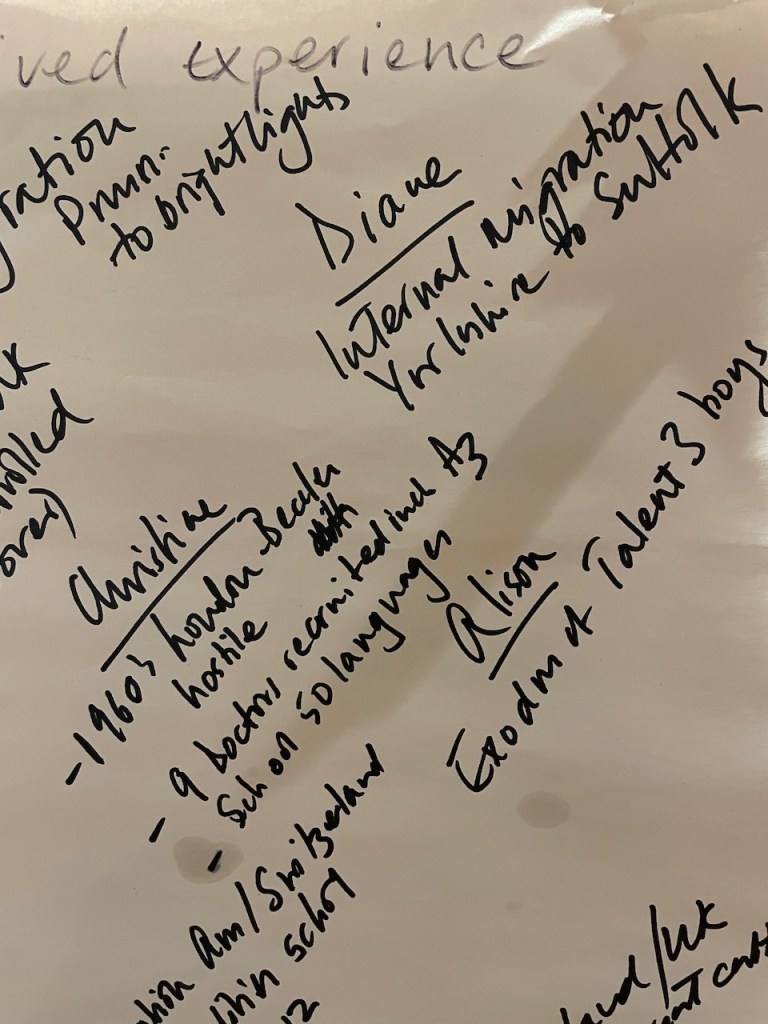 ived experience
ration
to bright lights
Diane
Internal migration
Yorkshire to Suffolk
uk
rolled
over)
Christine
- 1960's London - Becales
hostile
- 9 Doctors recruited incl A3
School 50 languages
Alison
Exodus of Talent 3 boys
-
Am/Switzerland
within school
12
land/UK